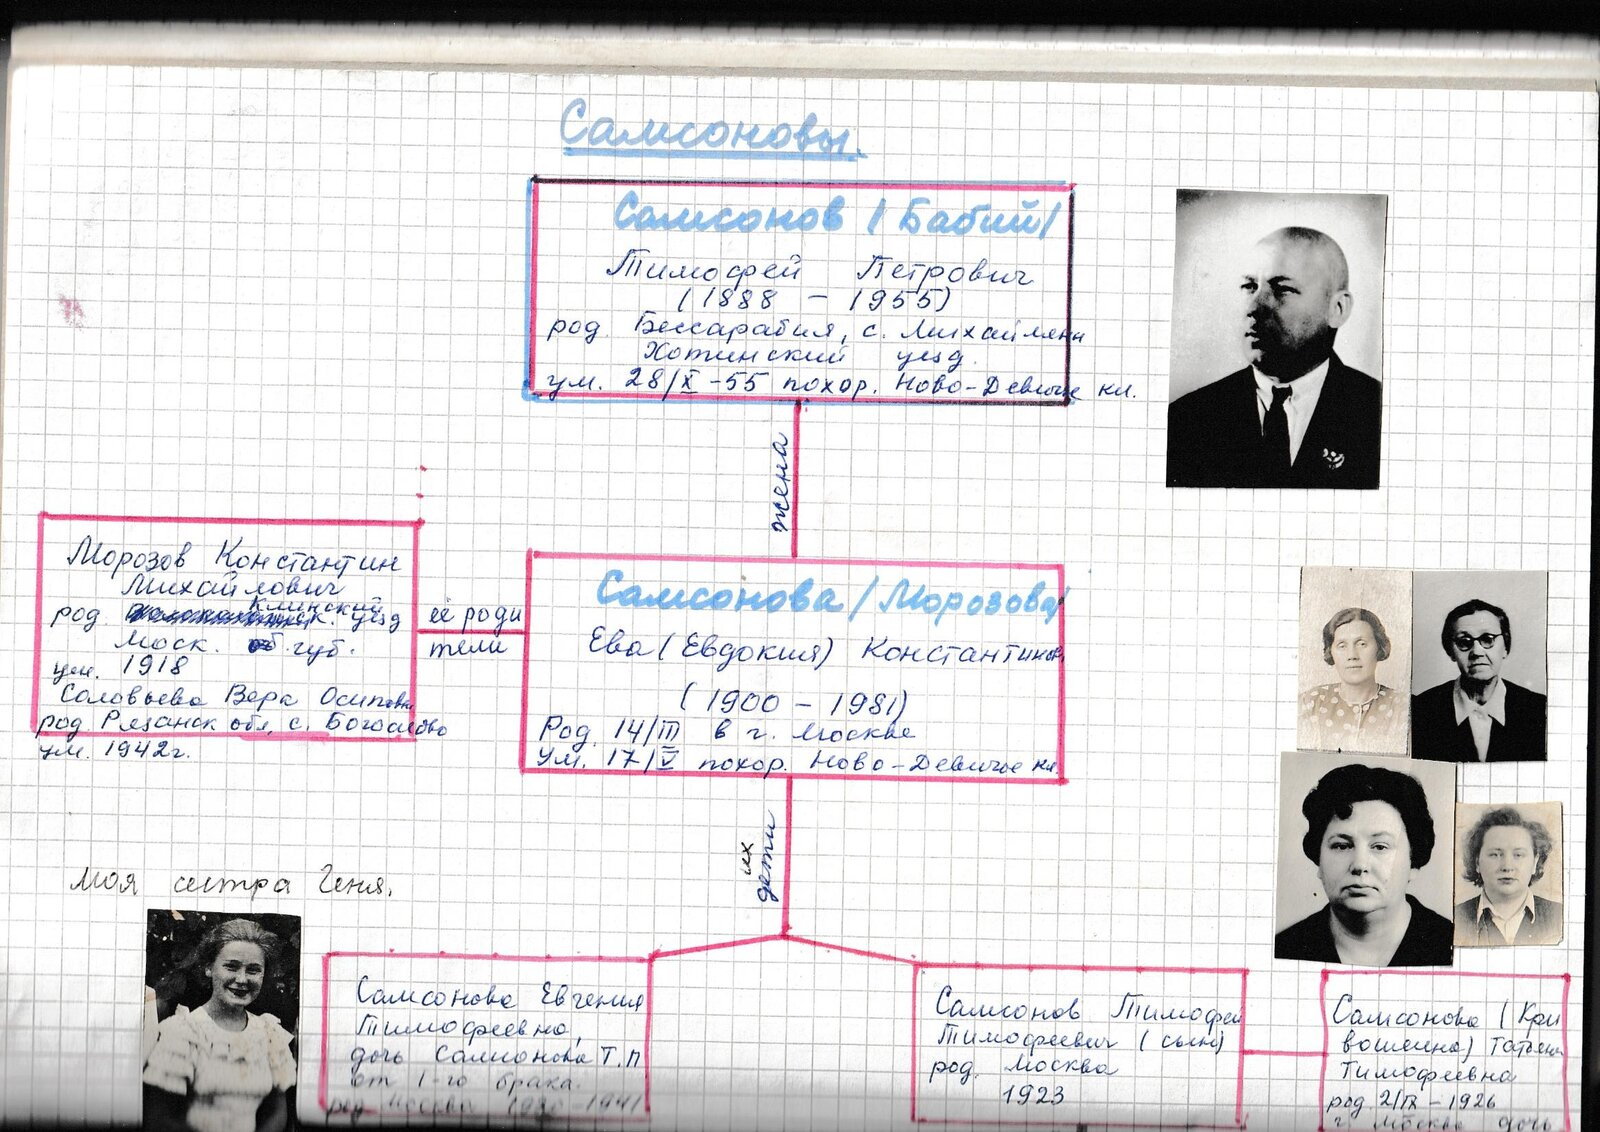 Самсоновы.
Самсонов (Бабий)
Тимофей Петрович
(1888 – 1955)
род. Бессарабия, с. Михайляни
Хотинский уезд.
ум. 28/X -55 похор. Ново-Девичье кл.
жена
Морозов Константин
Михайлович
Клинский
род. уезд
Моск. губ.
ум. 1918
Соловьева Вера Осиповна
род. Рязанск обл, с. Богослово
ум. 1942г.
её роди
тели
Самсонова (Морозова)
Ева (Евдокия) Константинов
(1900 – 1981)
Род. 14/III в г. Москве
Ум. 17/V похор. Ново-Девичье кл.
их
дети
Моя сестра Геня.
Самсонова Евгения
Тимофеевна,
дочь Самсонова Т.П
от 1-го брака.
род Москва 1920-1941
Самсонов Тимофей
Тимофеевич (сын)
род. Москва
1923
Самсонова (Кри
вошеина) Татьяна
Тимофеевна
род 2/IX – 1926
г. Москва дочь